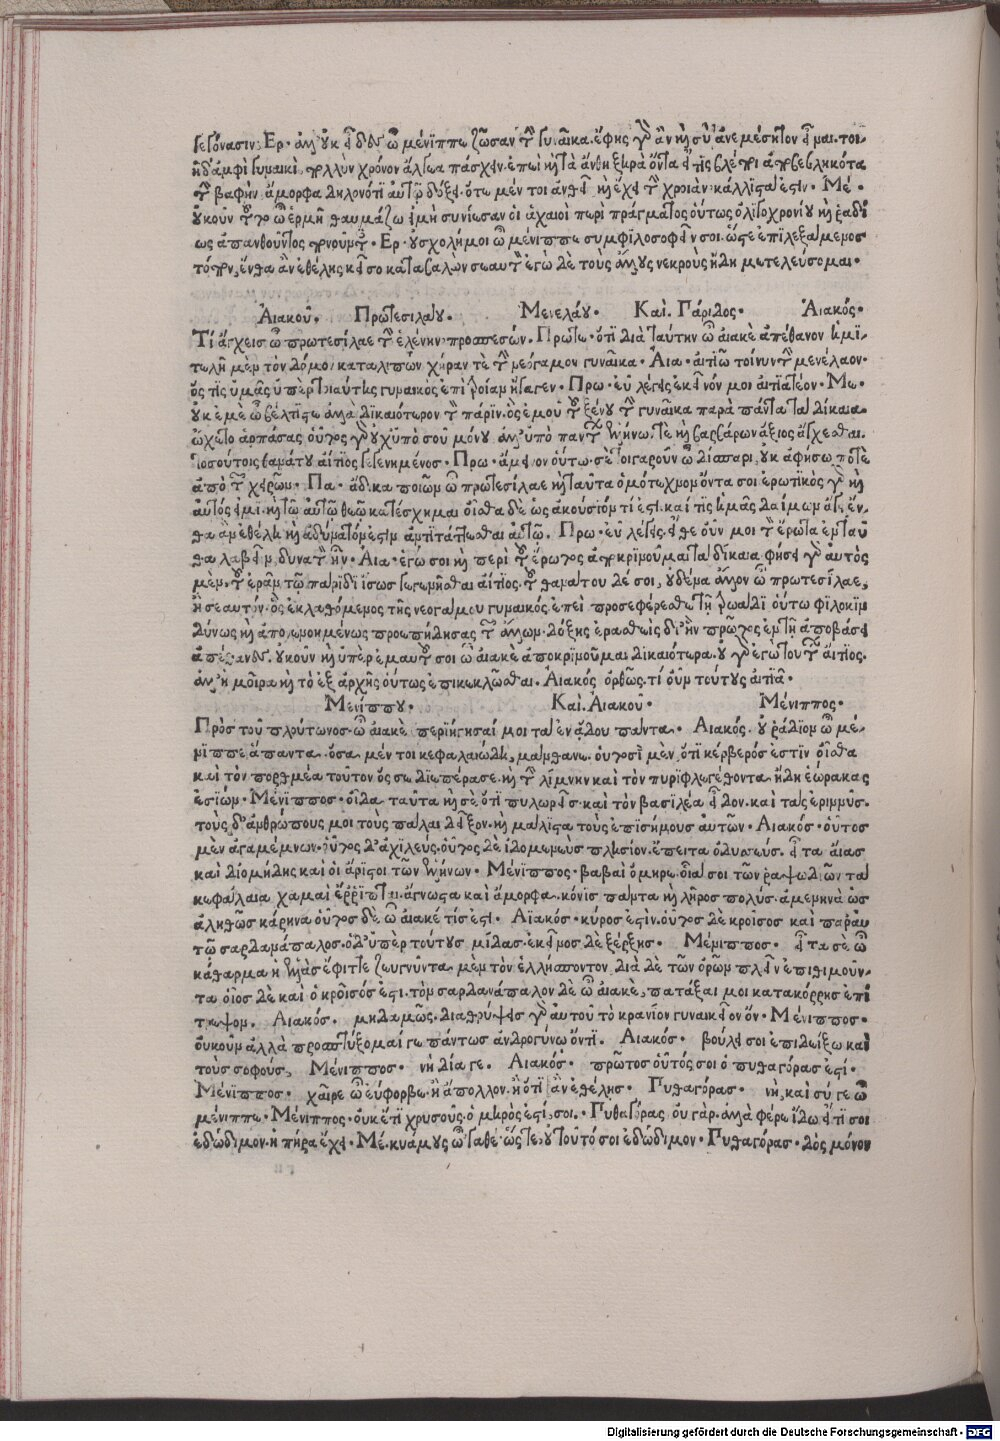 γεγόνασιν. Ερ. ἀλλ' οὐκ εἶδες ὦ μένιππε ζῶσαν τὴν γυναῖκα. ἔφης γὰρ ἂν καὶ σὺ ἀνεμέσητον εἶναι. τοι-
ῇδ' ἀμφὶ γυναικὶ πολλὺν χρόνον ἄλγεα πάσχειν. ἐπεὶ καὶ τὰ ἄνθη ξηρὰ ὄντα εἴ τις βλέποι ἀποβεβληκότα
τὴν βαφὴν, ἄμορφα δηλονότι αὐτῷ δόξει. ὅτε μέν τοι ἀνθεῖ καὶ ἔχει τὴν χροιὰν κάλλιστά ἐστιν. Μέ.
οὐκοῦν τοῦτο ὦ ἑρμῆ θαυμάζω εἰ μὴ συνίεσαν οἱ ἀχαιοὶ περὶ πράγματος οὕτως ὀλιγοχρονίου καὶ ῥαδί
ως ἀπανθοῦντος πονοῦντες. Ερ. οὐ σχολή μοι ὦ μένιππε συμφιλοσοφεῖν σοι. ὥστε ἐπιλεξάμενος
τόπον, ἔνθα ἂν ἐθέλῃς κεῖσο καταβαλὼν σεαυτὸν ἐγὼ δὲ τοὺς ἄλλους νεκροὺς ἤδη μετελεύσομαι.
Αἰακοῦ. Πρωτεσιλάου. Μενελάου. Καὶ Πάριδος. Αἰακός.
Τί ἄγχεις ὦ πρωτεσίλαε τὴν ἑλένην προσπεσών. Πρωτε. ὅτι διὰ ταύτην ὦ αἰακὲ ἀπέθανον ἡμι-
τελῆ μὲν τὸν δόμον καταλιπὼν χήραν τὲ τὴν νεόγαμον γυναῖκα. Αἰα. αἰτιῶ τοίνυν τὸν μενέλαον.
ὅς τις ὑμᾶς ὑπὲρ τοιαύτης γυναικὸς ἐπὶ τροίαν ἤγαγεν. Πρω. εὖ λέγεις ἐκεῖνόν μοι αἰτιατέον. Με.
οὐκ ἐμὲ ὦ βέλτιστε ἀλλὰ δικαιότερον τὸν πάριν. ὃς ἐμοῦ τοῦ ξένου τὴν γυναῖκα παρὰ πάντα τὰ δίκαια
ᾤχετο ἁρπάσας. οὗτος γὰρ οὐχ ὑπὸ σοῦ μόνου ἀλλ' ὑπὸ πάντων ἑλλήνων τὲ καὶ βαρβάρων ἄξιος ἄγχεσθαι.
τοσούτοις θανάτου αἴτιος γεγενημένος. Πρω. ἄμεινον οὕτω. σὲ τοιγαροῦν ὦ δύσπαρι οὐκ ἀφήσω ποτὲ
ἀπὸ τῶν χειρῶν. Πα. ἄδικα ποιῶν ὦ πρωτεσίλαε καὶ ταῦτα ὁμότεχνον ὄντα σοι ἐρωτικὸς γὰρ καὶ
αὐτός εἰμι. καὶ τῷ αὐτῷ θεῷ κατέσχημαι οἶσθα δὲ ὡς ἀκούσιόν τι ἐστί. καί τις ἡμᾶς δαίμων ἄγει ἔν-
θα ἂν ἐθέλῃ καὶ ἀδύνατόν ἐστιν ἀντιτάττεσθαι αὐτῷ. Πρω. εὖ λέγεις. εἴθε οὖν μοι τὸν ἔρωτα ἐνταῦ
θα λαβεῖν δυνατὸν ἦν. Αἰα. ἐγώ σοι καὶ περὶ τοῦ ἔρωτος ἀποκρινοῦμαι τὰ δίκαια. φήσει γὰρ αὐτὸς
μὲν τοῦ ἐρᾶν τῷ πάριδι ἴσως γεγενῆσθαι αἴτιος. τοῦ θανάτου δέ σοι, οὐδένα ἄλλον ὦ πρωτεσίλαε,
ἢ σεαυτόν. ὃς ἐκλαθόμενος τῆς νεογάμου γυναικός, ἐπεὶ προσεφέρεσθε τῇ τρωάδι οὕτω φιλοκιν
δύνως καὶ ἀπονενοημένως προεπήδησας τῶν ἄλλων. δόξης ἐρασθεὶς δι' ἣν πρῶτος ἐν τῇ ἀποβάσει
ἀπέθανες. οὐκοῦν καὶ ὑπὲρ ἐμαυτοῦ σοι ὦ αἰακὲ ἀποκρινοῦμαι δικαιότερα. οὐ γὰρ ἐγὼ τούτων αἴτιος.
ἀλλ' ἡ μοῖρα καὶ τὸ ἐξ ἀρχῆς οὕτως ἐπικεκλῶσθαι. Αἰακός ὀρθῶς. τί οὖν τούτους αἰτιᾷ.
Μενίππου. Καὶ Αἰακοῦ. Μένιππος.
Πρὸς τοῦ πλούτωνος. ὦ αἰακὲ περιήγησαί μοι τὰ ἐν ᾅδου πάντα. Αἰακός. οὐ ῥάδιον ὦ μέ-
νιππε ἅπαντα. ὅσα μέν τοι κεφαλαιώδη, μάνθανε. οὑτοσὶ μὲν, ὅτι κέρβερός ἐστὶν οἶσθα
καὶ τὸν πορθμέα τοῦτον ὅς σε διεπέρασε. καὶ τὴν λίμνην καὶ τὸν πυριφλεγέθοντα ἤδη ἑώρακας
ἐσιών. Μένιππος. οἶδα ταῦτα καὶ σὲ ὅτι πυλωρεῖς. καὶ τὸν βασιλέα εἶδον. καὶ τὰς ἐριννῦς.
τοὺς δ' ἀνθρώπους μοι τοὺς πάλαι δεῖξον. καὶ μάλιστα τοὺς ἐπισήμους αὐτῶν. Αἰακός. οὗτος
μὲν ἀγαμέμνων. οὗτος δ' ἀχιλεύς. οὗτος δὲ ἰδομενεὺς πλησίον. ἔπειτα ὀδυσεύς. εἶτα αἴας
καὶ διομήδης καὶ οἱ ἄριστοι τῶν ἑλλήνων. Μένιππος. βαβαὶ ὅμηρε. οἷά σοι τῶν ῥαψῳδιῶν τὰ
κεφάλαια χαμαὶ ἔῤῥιπται. ἄγνωστα καὶ ἄμορφα. κόνις πάντα καὶ λῆρος πολύς. ἀμενηνὰ ὡς
ἀληθῶς κάρηνα οὗτος δὲ ὦ αἰακέ τίς ἐστι. Αἰακός. κῦρος ἐστὶν. οὗτος δὲ κροῖσος καὶ παρ' αὐ
τῷ σαρδανάπαλος. ὁ δ' ὑπὲρ τούτους μίδας. ἐκεῖνος δὲ ξέρξης. Μένιππος. εἶτα σὲ ὦ
κάθαρμα ἡ ἑλλὰς ἔφριττε ζευγνῦντα μὲν τὸν ἑλλήσποντον. διὰ δὲ τῶν ὀρῶν πλεῖν ἐπιθιμοῦν-
τα οἷος δὲ καὶ ὁ κροῖσός ἐστι. τὸν σαρδανάπαλον δὲ ὦ αἰακὲ, πατάξαι μοι κατακόρρης ἐπί
τρεψον. Αἰακός. μηδαμῶς. διαθρύψεις γὰρ αὐτοῦ τὸ κρανίον γυναικεῖον ὄν. Μένιππος.
οὐκοῦν ἀλλὰ προσπτύξομαί γε πάντως ἀνδρογύνῳ ὄντι. Αἰακός. βούλει σοι ἐπιδείξω καὶ
τοὺς σοφούς, Μένιππος. νὴ δία γε. Αἰακός. πρῶτος οὗτός σοι ὁ πυθαγόρας ἐστί.
Μένιππος. χαῖρε ὦ εὔφορβε. ἢ ἄπολλον. ἢ ὅτι ἂν ἐθέλῃς. Πυθαγόρας. νὴ, καὶ σύ γε ὦ
μένιππε. Μένιππος. οὐκ ἔτι χρυσοῦς. ὁ μηρός ἐστί σοι. Πυθαγόρας. οὐ γάρ. ἀλλὰ φέρε ἴδω εἴ τί σοι
ἐδώδιμον. ἡ πήρα ἔχει. Μέ. κυάμους ὦ 'γαθέ. ὥστε οὐ τοῦτό σοι ἐδώδιμον. Πυθαγόρας. δὸς μόνον
Digitalisierung gefördert durch die Deutsche Forschungsgemeinschaft - DFG